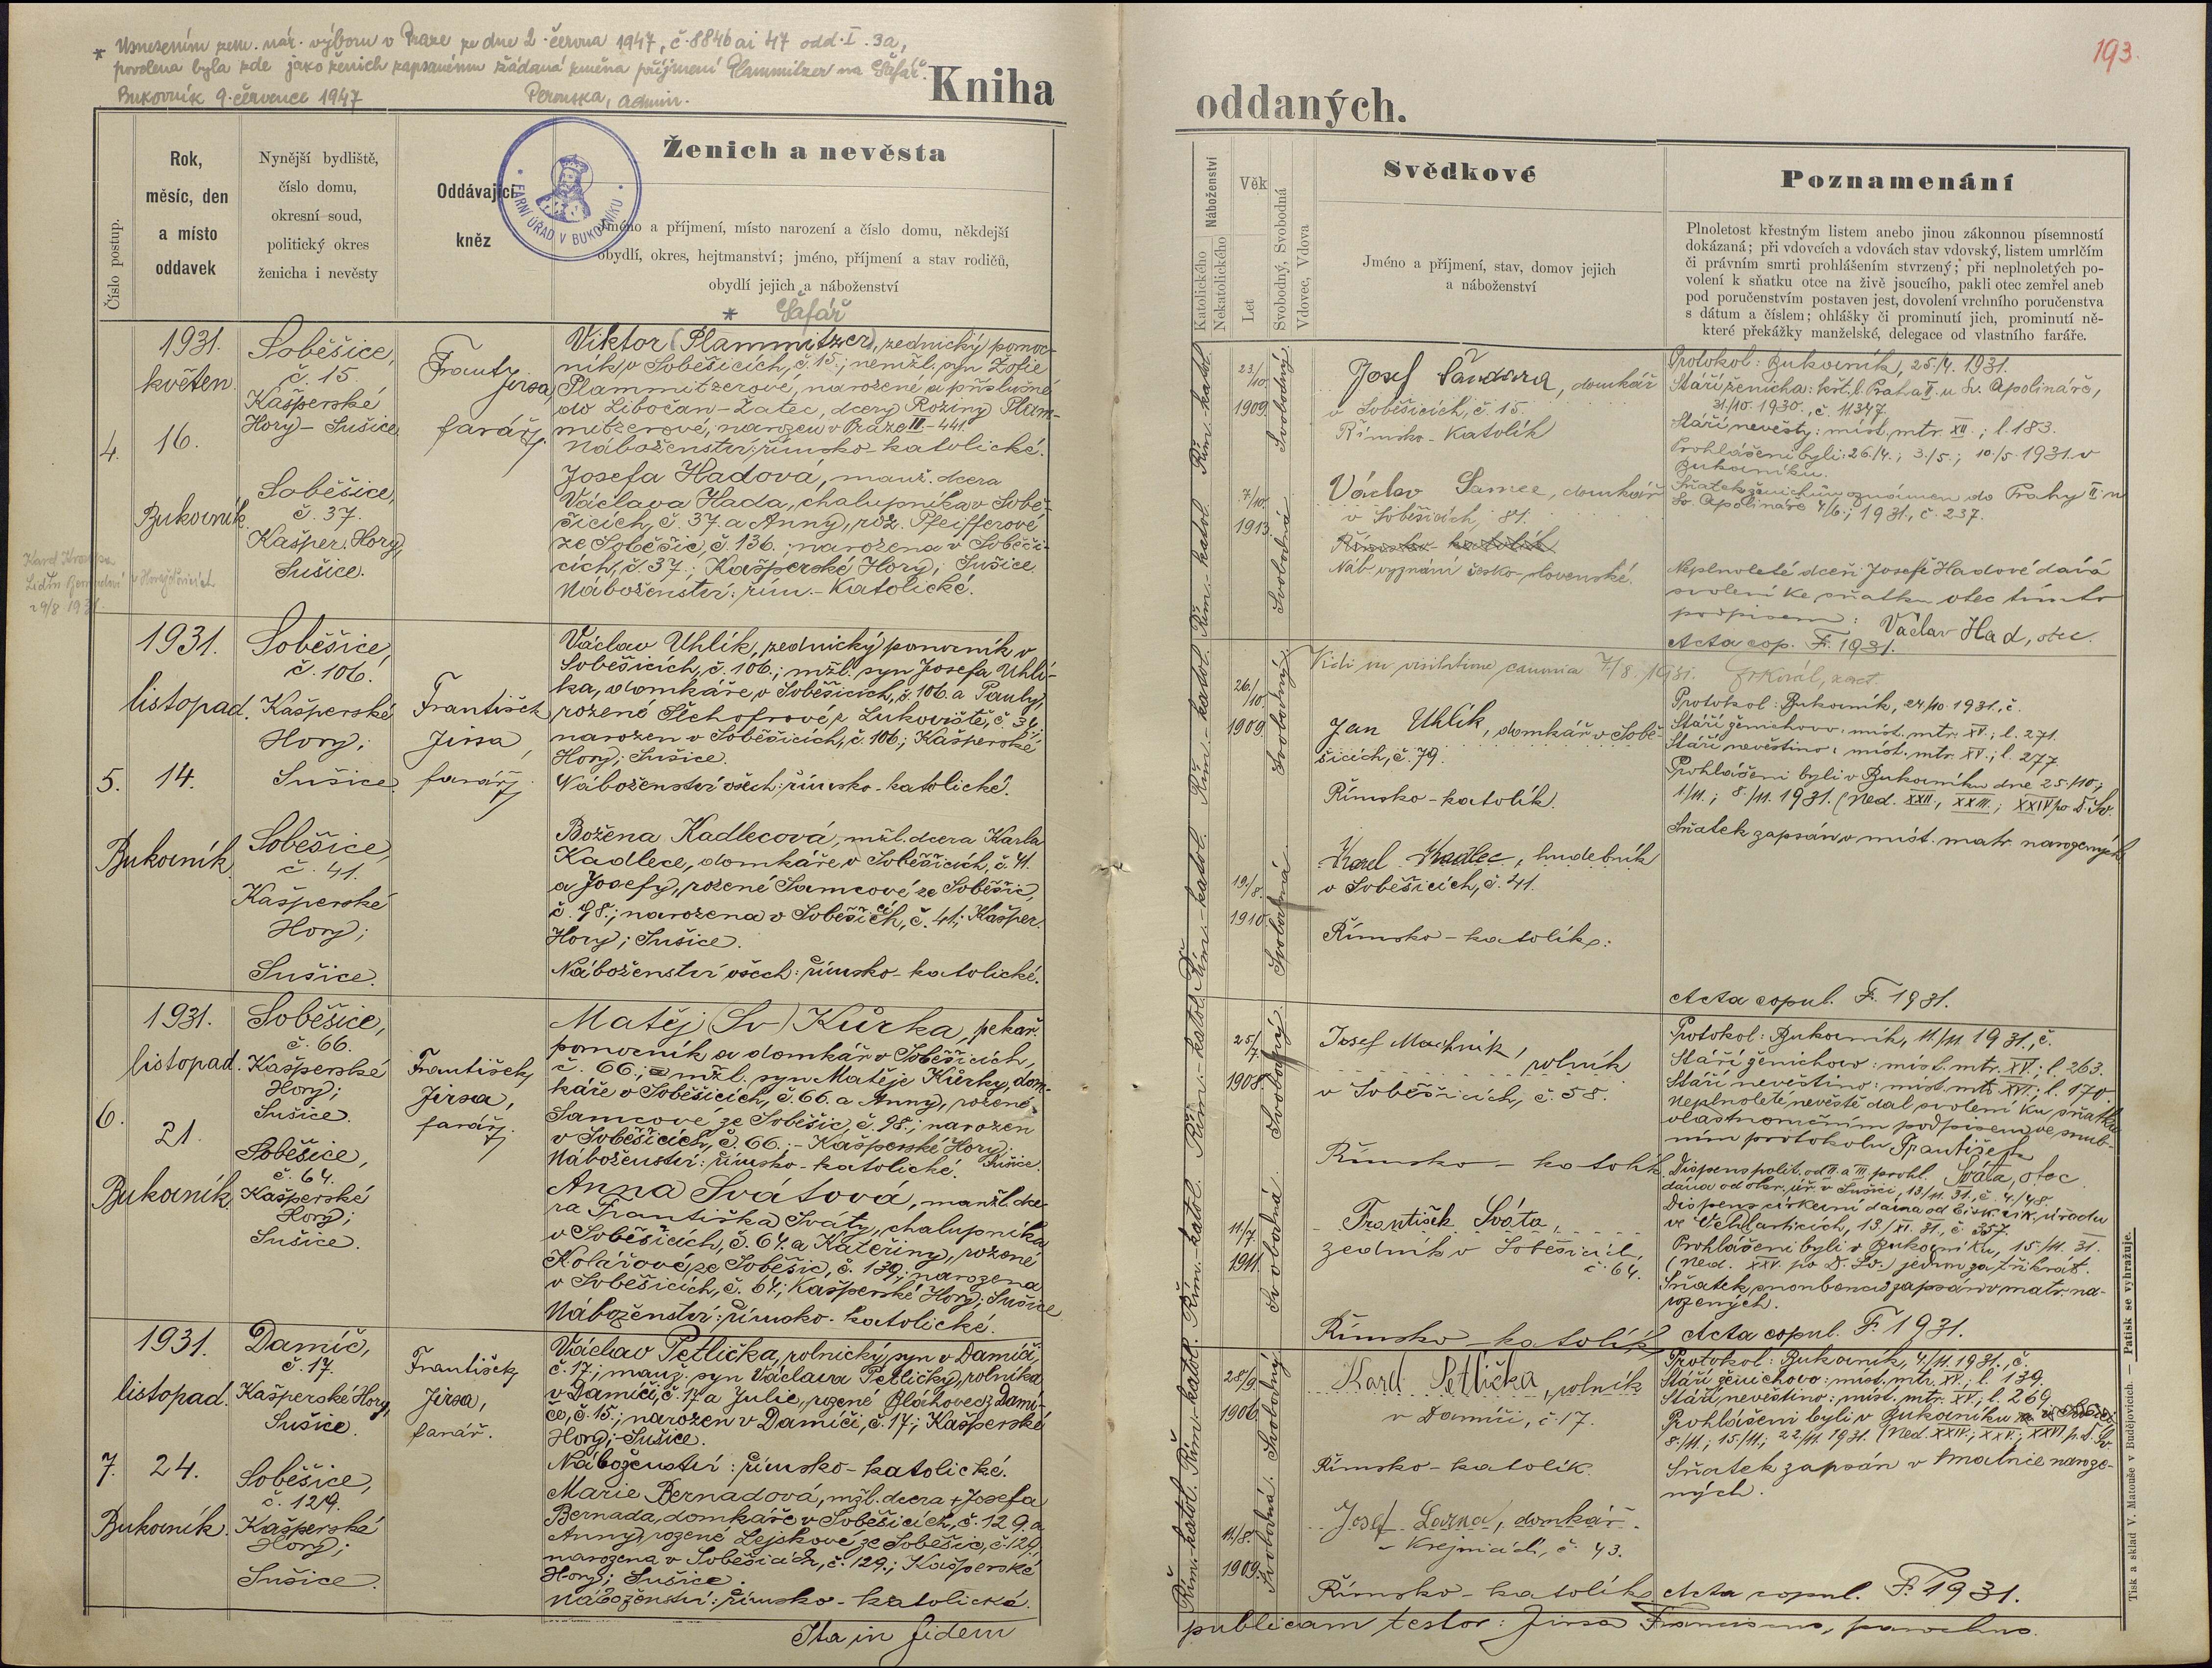 * Usnesením zem. nár. výboru v Praze ze dne 2. června 1947, č. 8846 ai 47 odd. I. 3a,
povolena byla zde jako ženich zapsanému žádaná změna příjmení Plammitzer na Šafář.
Bukovník 9. července 1947 Perouska, admin.
Kniha
FARNÍ ÚŘAD V BUKOVNÍKU
Číslo postup.
Rok,
měsíc, den
a místo
oddavek
Nynější bydliště,
číslo domu,
okresní soud,
politický okres
ženicha i nevěsty
Oddávající
kněz
Ženich a nevěsta
Jméno a příjmení, místo narození a číslo domu, někdejší
obydlí, okres, hejtmanství; jméno, příjmení a stav rodičů,
obydlí jejich a náboženství
* Šafář
1931.
květen.
16.
4.
Bukovník.
Soběšice,
č. 15.
Kašperské
Hory – Sušice.
Soběšice,
č. 37.
Kašper. Hory,
Sušice.
Frant.
Jirsa,
farář.
Viktor (Plammitzer), zednický pomoc-
ník v Soběšicích, č. 15.; nemžl. syn Žofie
Plammitzerové, narozené a příslušné
do Libočan – Žatec, dcery Roziny Plam-
mitzerové, narozen v Praze II – 441.
Náboženství: římsko-katolické.
Josefa Hadová, manž. dcera
Václava Hada, chalupníka v Sobě-
šicích, č. 37. a Anny, roz. Pfeifferové
ze Soběšic, č. 136.; narozena v Soběši-
cích, č. 37.; Kašperské Hory; Sušice.
Náboženství: řím.-Katolické.
1931.
listopad.
14.
5.
Bukovník
Soběšice,
č. 106.
Kašperské
Hory;
Sušice.
Soběšice,
č. 41.
Kašperské
Hory;
Sušice.
František
Jirsa,
farář.
Václav Uhlík, zednický pomocník v
Soběšicích, č. 106.; mžl. syn Josefa Uhlí-
ka, domkáře v Soběšicích, č. 106. a Pauly,
narozen v Soběšicích, č. 106.; Kašperské
Hory; Sušice.
Náboženství všech: římsko-katolické.
Božena Kadlecová, mžl. dcera Karla
Kadlece, domkáře v Soběšicích, č. 41.
a Josefy, rozené Samcové ze Soběšic,
č. 98.; narozena v Soběšicích, č. 41.; Kašper.
Hory; Sušice.
Náboženství všech: římsko-katolické.
1931.
listopad.
6.
21.
Bukovník.
Soběšice,
č. 66.
Kašperské
Hory;
Sušice.
Soběšice,
č. 64.
Kašperské
Hory;
Sušice.
František
Jirsa,
farář.
Matěj (Sv) Kůrka, pekař.
pomocník a domkář v Soběšicích,
č. 66.; mžl. syn Matěje Kůrky, dom-
káře v Soběšicích, č. 66. a Anny, rozené
Samcové ze Soběšic, č. 98.; narozen
v Soběšicích, č. 66.; – Kašperské Hory; Sušice.
Náboženství: římsko-katolické.
Anna Svátová, manžl. dce-
ra Františka Sváty, chalupníka
v Soběšicích, č. 64. a Kateřiny, rozené
Kolářové ze Soběšic, č. 139; narozena
v Soběšicích, č. 64; Kašperské Hory; Sušice
Náboženství: římsko-katolické.
1931.
listopad.
7. 24.
Bukovník.
Damíč,
č. 17.
Kašperské Hory,
Sušice.
Soběšice,
č. 129.
Kašperské
Hory;
Sušice.
František
Jirsa,
farář.
Václav Petlička, rolnický syn v Damíči,
č. 17; manž. syn Václava Petličky, rolníka
v Damíči, č. 17 a Julie, rozené Bláhovec z Damí-
če, č. 15.; narozen v Damíči, č. 17; Kašperské
Hory; – Sušice.
Náboženství: římsko-katolické.
Marie Bernadová, mžl. dcera + Josefa
Bernada, domkáře v Soběšicích, č. 129. a
Anny, rozené Lejskové ze Soběšic, č. 129;
narozena v Soběšicích, č. 129.; Kašperské
Hory; Sušice.
Náboženství: římsko-katolické.
Ita in fidem
193.
oddaných.
Náboženství
Katolického
Nekatolického
Věk
Let
Svobodný, Svobodná
Vdovec, Vdova
Svědkové
Jméno a příjmení, stav, domov jejich
a náboženství
Poznamenání
Plnoletost křestným listem anebo jinou zákonnou písemností
dokázaná; při vdovcích a vdovách stav vdovský, listem umrlčím
či právním smrti prohlášením stvrzený; při neplnoletých po-
volení k sňatku otce na živě jsoucího, pakli otec zemřel aneb
pod poručenstvím postaven jest, dovolení vrchního poručenstva
s dátum a číslem; ohlášky či prominutí jich, prominutí ně-
které překážky manželské, delegace od vlastního faráře.
Řím.-katol.
23/10.
1909.
Svobodný.
7/10.
1913.
Svobodná
Josef Vandara, domkář
v Soběšicích, č. 15.
Římsko-Katolík
Václav Samec, domkář
v Soběšicích, 81.
Římsko-katolík
Náb. vyznání česko-slovenské.
Protokol: Bukovník, 25./4. 1931.
Stáří ženicha: křt. l. Praha II. u Sv. Apolináře,
31/10. 1930., č. 11347.
Stáří nevěsty: míst. mtr. XII.; l. 183.
Prohlášeni byli: 26./4.; 3./5.; 10./5. 1931. v
Bukovníku.
Sňatek ženichův oznámen do Prahy II. u
Sv. Apolináře 4/6.; 1931., č. 237.
Neplnoleté dceři Josefě Hadové dává
svolení ke sňatku otec tímto
podpisem: Václav Had, otec.
Acta cop. F. 1931.
26./10.
1909
Svobodný.
19./8.
1910.
Svobodná.
Jan Uhlík, domkář v Sobě-
šicích, č. 79.
Římsko-katolík.
Karel Kadlec, hudebník
v Soběšicích, č. 41.
Římsko-katolík.
Protokol: Bukovník, 24/10. 1931., č.
Stáří ženichovo: míst. mtr. XV.; l. 271.
Stáří nevěstino: míst. mtr. XV.; l. 277.
Prohlášeni byli v Bukovníku dne 25./10.;
1/11.; 8./11. 1931. (Ned. XXII., XXIII.; XXIV po D. Sv.
Sňatek zapsán v míst. matr. narozených
Acta copul. F. 1931.
25/7.
1908
Svobodný.
11/7.
1911.
Svobodná
Josef Machník, rolník
v Soběšicích, č. 58.
Římsko-katolík
František Sváta,
zedník v Soběšicích,
č. 64.
Římsko-katolík
Protokol: Bukovník, 11/11. 1931., č.
Stáří ženichovo: míst. mtr. XV.; l. 263.
Stáří nevěstino: míst. mtr. XVI.; l. 170.
Neplnoleté nevěstě dal svolení ku sňatku
vlastnoručním podpisem ve snub-
ním protokolu František
Sváta, otec
Dispens polit. od II. a III. prohl.
dána od okr. úř. v Sušici, 13/11. 31., č. 4./48.
ve Vehlarticích, 13/XI. 31., č. 357.
Prohlášeni byli v Bukovníku, 15./11. 31.
(ned. XXV. po D. Sv.) jednou za třikrát.
rozených.
Acta copul. F. 1931.
28/9.
1906.
Svobodný
12/8.
1909.
Svobodná.
Karel Petlička, rolník
v Damíči, č. 17.
Římsko-katolík.
Josef Lazna, domkář
č. 43.
Římsko-katolík
Protokol: Bukovník, 4/11. 1931., č.
Stáří ženichovo: míst. mtr. XV.; l. 139.
Stáří nevěstino: míst. mtr. XV.; l. 269
Prohlášeni byli v Bukovníku
8./11.; 15./11.; 22/11. 1931. (Ned. XXIV.; XXV.; XXVI p. D. Sv.
Sňatek zapsán v matrice naroze-
ných.
Acta copul. F. 1931.
publicam testor: Jirsa Franciscus, parochus.
Tisk a sklad V. Matouše v Budějovicích. — Patisk se vyhražuje.